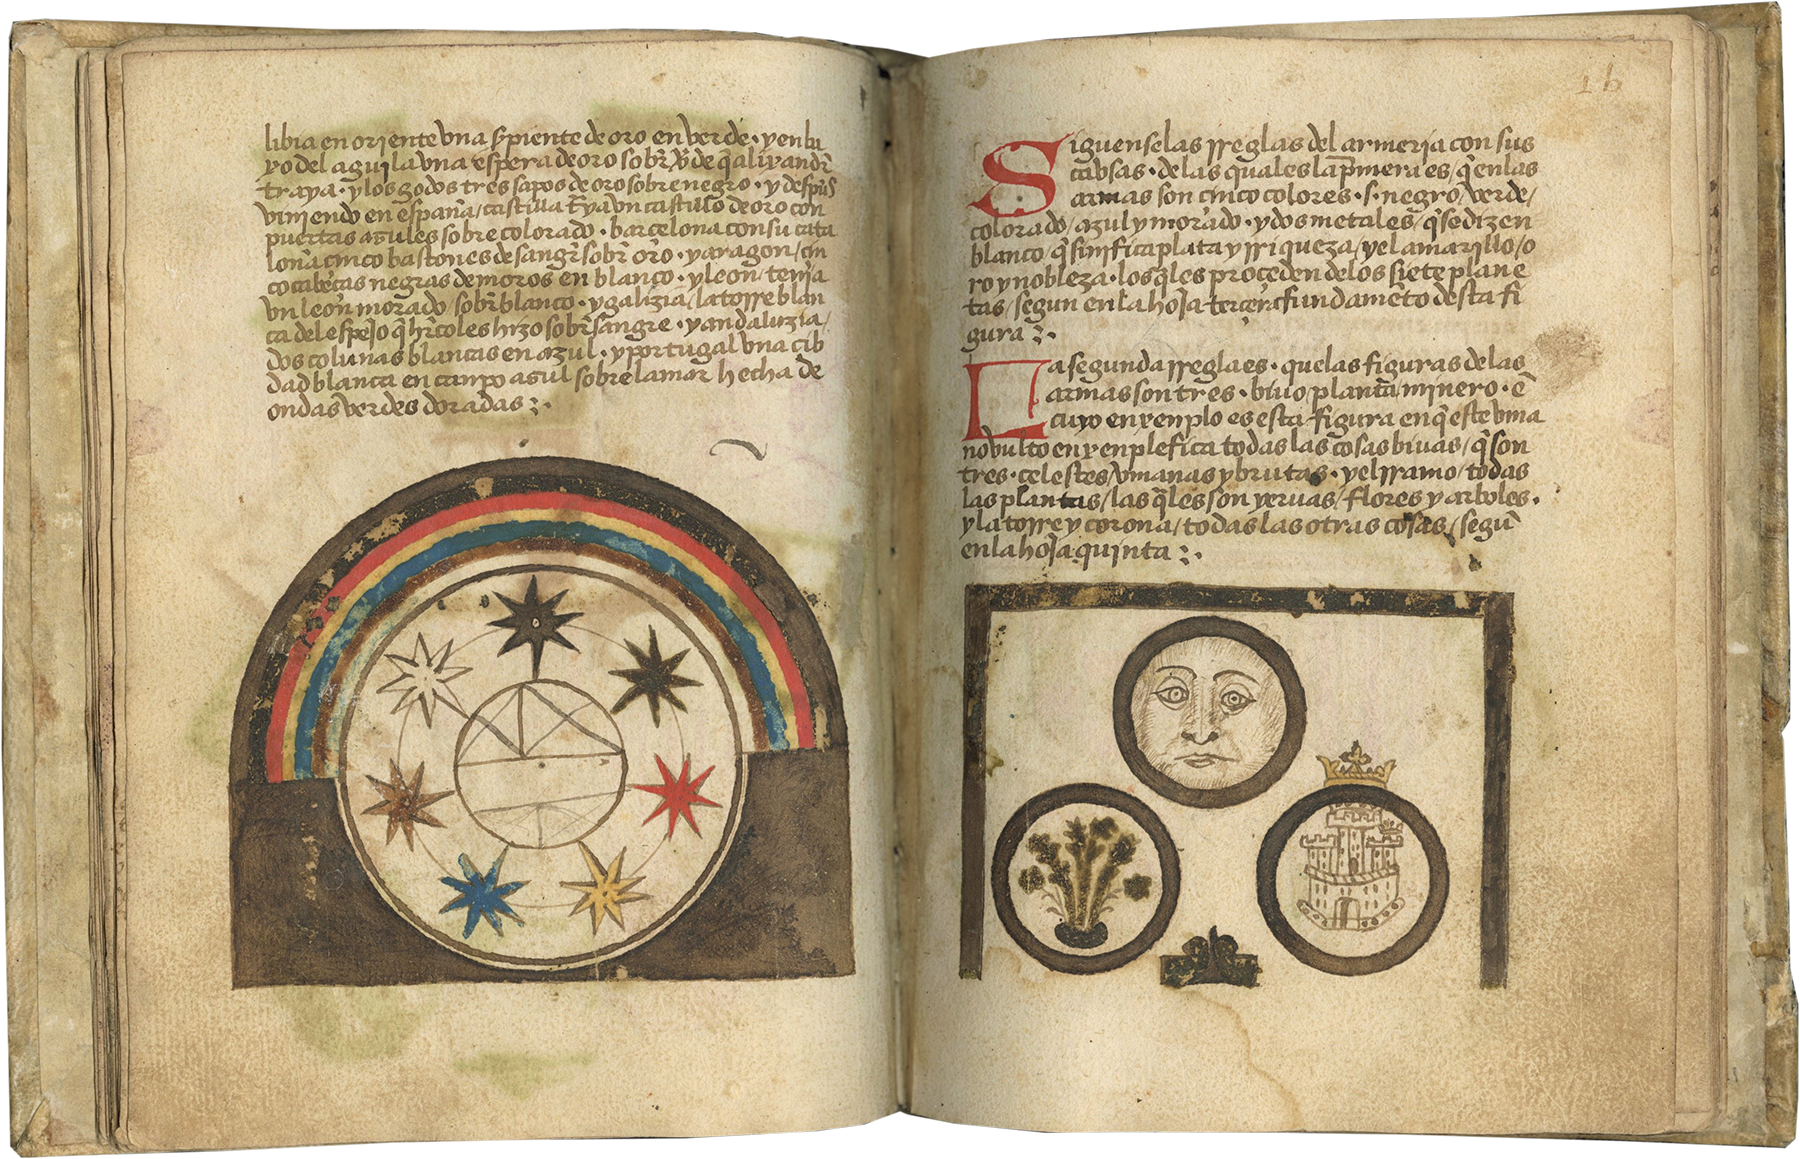 libia en oriente vna sṕpiente de oro en verde · y en lu
yo del aguila vna espera de oro sobr̃ v̑de q̃ alixandr̃
traya · y los godos tres sapos de oro sobre negro · y despũs
viniendo en españa / castilla traya vn castillo de oro con
puertas azules sobre colorado · barcelona con su cata
loña cinco bastones de sangr̃ sobr̃ oro · y aragon / cin
co cabeças negras de moros en blanco · y leon / tenia
vn leon morado / sobr̃ blanco · y galizia / la torre blan
ca del espejo q̃ hr̃coles hizo sobr̃ sangre · y andaluzia /
dos colunas blancas en azul · y portugal vna cib
dad blanca en canpo azul sobre la mar hecha de
ondas verdes doradas :·
1b
Siguense las rreglas del armeria con sus
cabsas · de las quales la p̃mera es / q̃ en las
armas son cinco colores · s · negro / verde /
colorado / azul y morado · y dos metales / q̃ se dizen
blanco / q̃ sinifica plata y rriqueza / y el amarillo / o
ro y nobleza · los q̃les proceden de los siete plane
tas / segun en la hoja tercera fundamẽto desta fi
gura :·
La segunda rregla es · que las figuras de las
armas son tres · biuo / planta / minero · ẽ
cuyo enxenplo es esta figura en q̃ este vma
no vulto enxenplefica todas las cosas biuas / q̃ son
tres · celestes / vmanas y brutas · y el rramo / todas
las plantas / las q̃les son yeruas / flores y arboles ·
y la torre y corona / todas las otras cosas / segũ
en la hoja quinta :·